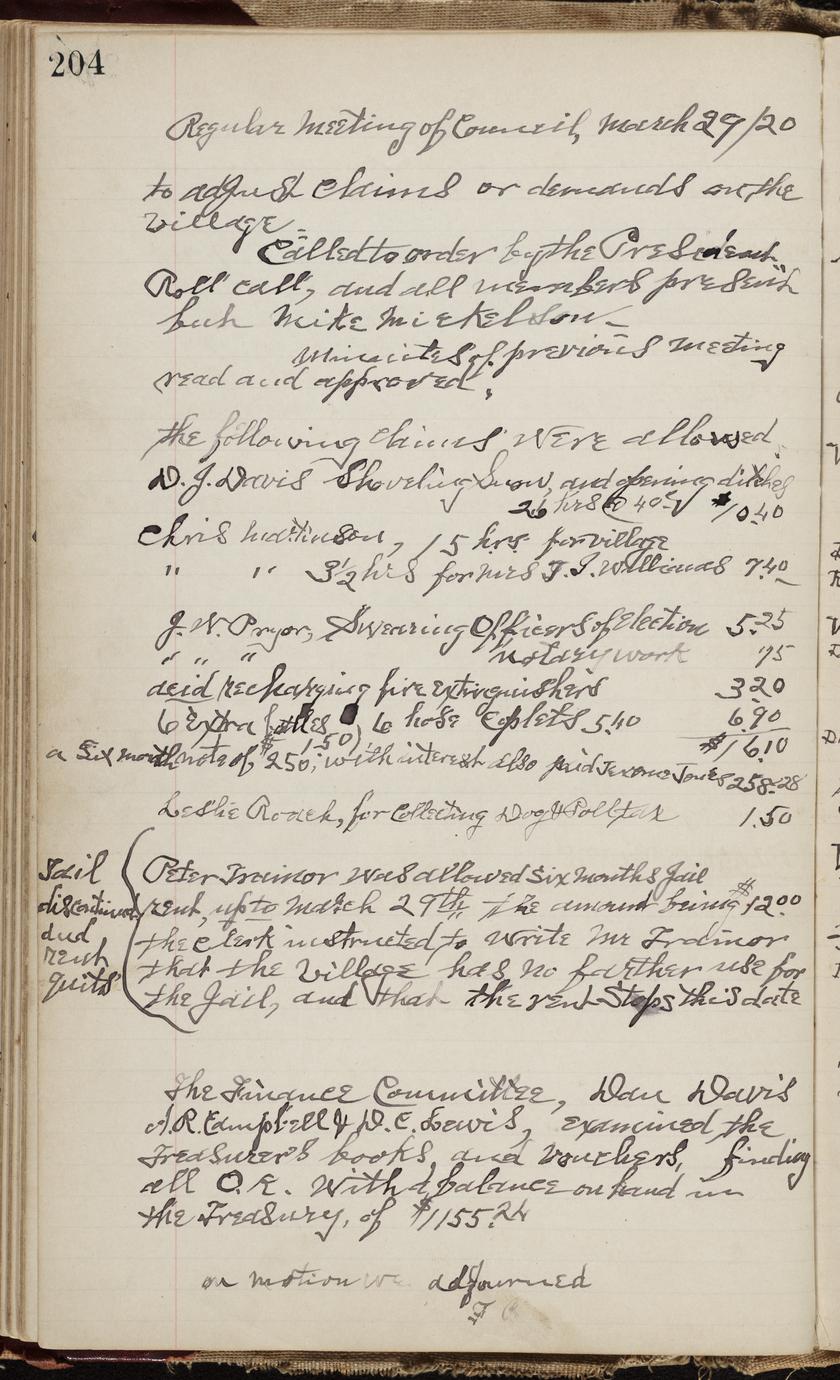 204
Regular Meeting of Council, March 29/20
to adjust claims or demands on the
village.
Called to order by the President.
Roll call, and all members present
but Mike Mickelson
Minuites of previous meeting
read and approved.
the following claims were allowed
D. J. Davis Shoveling Snow, and opening ditches
26 hrs @ 40¢ $10.40
Chris Mattinson, 15 hrs for village
" " 3 1/2 hrs for Mrs T. J. Williams 7.40
J. W. Pryor, Swearing Officers of Election 5.25
" " " Notary work 75
acid recharging fire extinguishers 3.20
6 Extra bottles 1.50) 6 hose Coplets 5.40 6.90
$16.10
a Six month note of $250; with interest also paid Jerome Jones 258.28
Leslie Roach, for Collecting Dog & Poll tax 1.50
Jail
discontinued
and
rent
quits
Peter Trainor was allowed six months Jail
rent, up to March 29th the amount being $12.00
the Clerk instructed to write Mr Trainor
that the Village has no farther use for
the Jail, and that the rent Stops this date
The Finance Committee, Dan Davis
A. R. Campbell & D. E. Lewis, examined the
Treasurer's books, and vouchers, finding
all O.K. With a balance on hand in
the Treasury, of $1155.24
on motion we adjourned